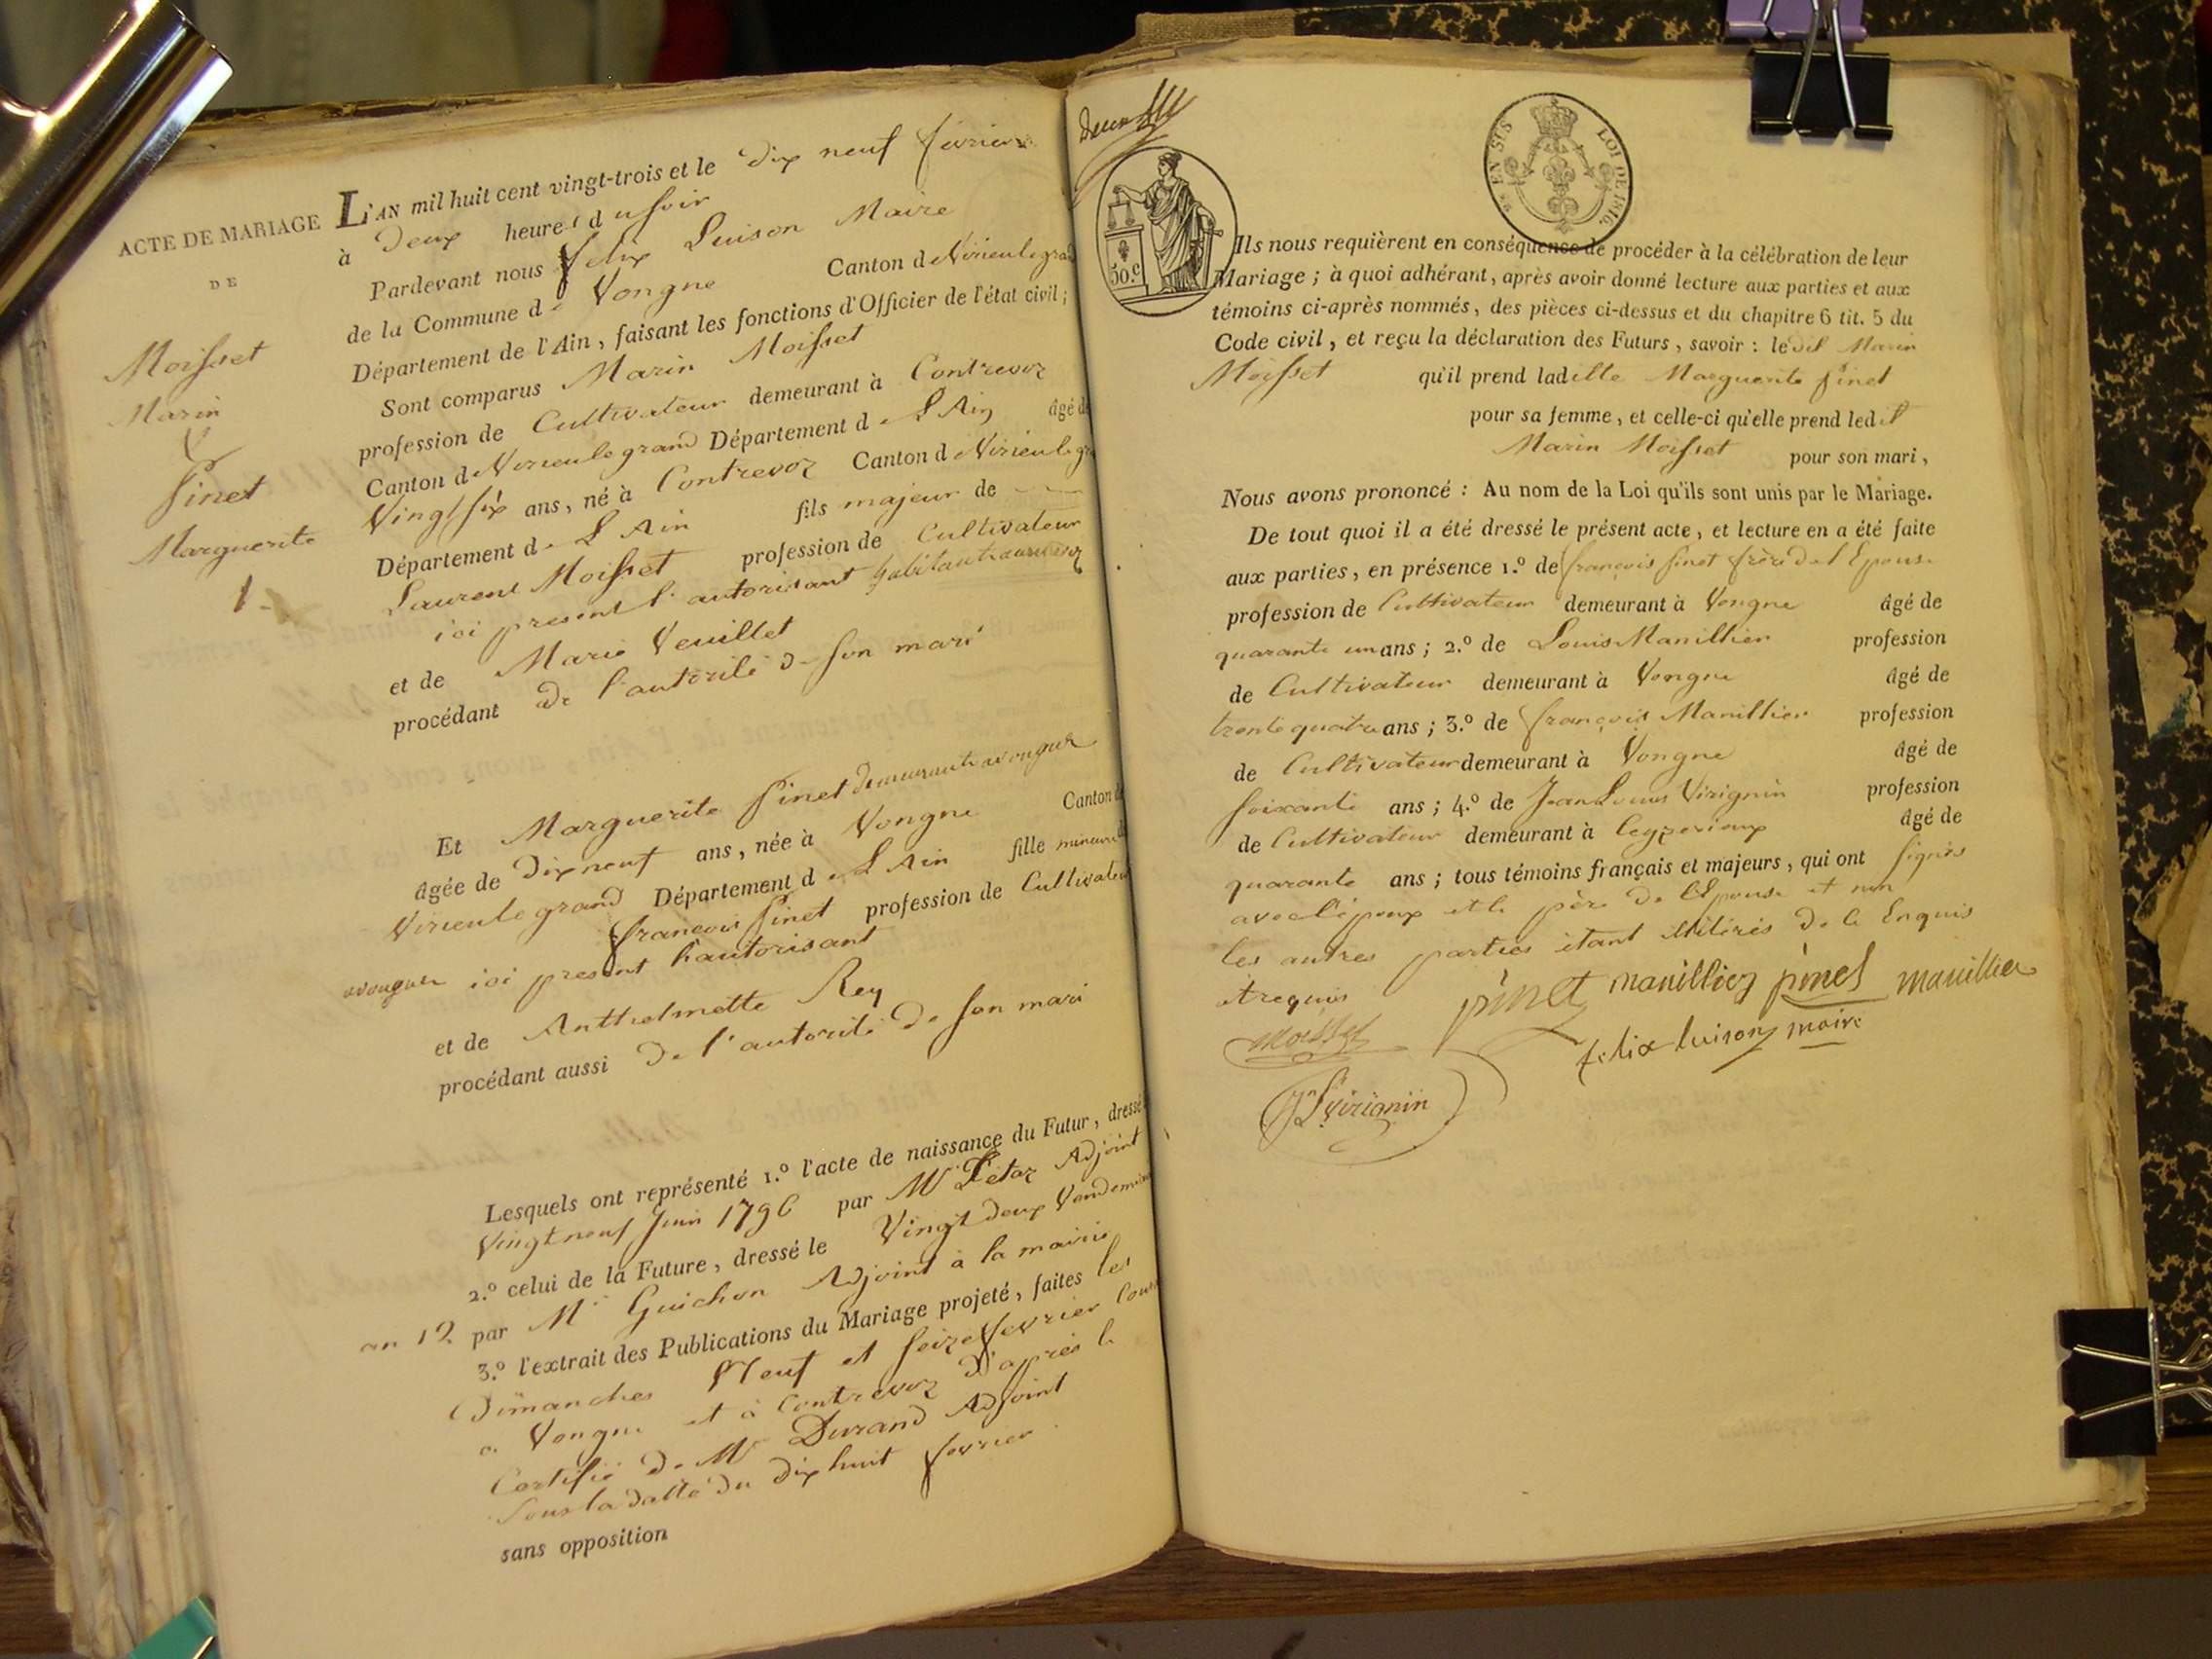 ACTE DE MARIAGE
DE
Moisset
Marin
&
pinet
Marguerite
1.
L'AN mil huit cent vingt-trois et le dix neuf fevrier
à deux heures du soir
Pardevant nous felix Luison Maire
de la Commune de Vongne Canton de Virieulegrand
Département de l'Ain, faisant les fonctions d'Officier de l'état civil;
Sont comparus Marin Moisset
profession de Cultivateur demeurant à Contrevoz
Canton de Virieulegrand Département de L'Ain âgé de
Vingt six ans, né à Contrevoz Canton de Virieulegr
Département de L'Ain fils majeur de
Laurent Moisset profession de Cultivateur
ici present l'autorisant habitant a contrevoz
et de Marie Veuillet
procédant de l'autorité de son mari
Et Marguerite pinet demeurante a vongne
âgée de dix neuf ans, née à Vongne Canton de
Virieulegrand Département de L'Ain fille mineure de
francois pinet profession de Cultivateur
a vongne ici present l'autorisant
et de Anthelmette Rey
procédant aussi de l'autorité de son mari
Lesquels ont représenté 1.º l'acte de naissance du Futur, dressé
Vingt neuf Juin 1796 par Mr Létaz Adjoint
2.º celui de la Future, dressé le Vingt deux Vendemiaire
an 12 par Mr Guichon Adjoint à la mairie
3.º l'extrait des Publications du Mariage projeté, faites les
Dimanches Neuf et seize fevrier Cour
a Vongne et à Contrevoz d'après le
Certifié de Mr Durand Adjoint
sous la datte du dix huit fevrier
sans opposition
50.c
EN SUS
LOI DE 1816.
Ils nous requièrent en conséquence de procéder à la célébration de leur
Mariage; à quoi adhérant, après avoir donné lecture aux parties et aux
témoins ci-après nommés, des pièces ci-dessus et du chapitre 6 tit. 5 du
Code civil, et reçu la déclaration des Futurs, savoir: le dit Marin
Moisset qu'il prend ladille Marguerite pinet
pour sa femme, et celle-ci qu'elle prend ledit
Marin Moisset pour son mari,
Nous avons prononcé: Au nom de la Loi qu'ils sont unis par le Mariage.
De tout quoi il a été dressé le présent acte, et lecture en a été faite
aux parties, en présence 1.º de françois pinet frère de l'Epouse
profession de Cultivateur demeurant à Vongne âgé de
quarante un ans; 2.º de Louis Manillier profession
de Cultivateur demeurant à Vongne âgé de
trente quatre ans; 3.º de françois Manillier profession
de Cultivateur demeurant à Vongne âgé de
soixante ans; 4.º de Jean Louis Virignin profession
de Cultivateur demeurant à Ceyzerieux âgé de
quarante ans; tous témoins français et majeurs, qui ont signés
avec l'époux et le père de l'Epouse et non
les autres parties étant illiterés de ce Enquis
et requis
pinet manillier pinet manillier
Moisset
felix luison maire
JL virignin